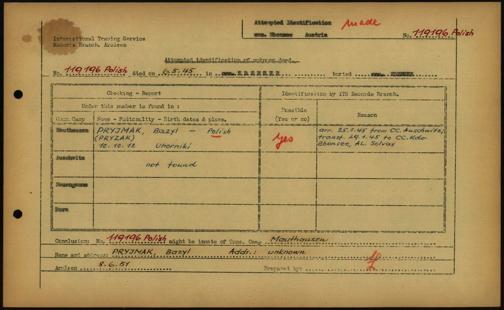 Attempted Identification made
cem. Ebensee Austria No. 119196 Polish
International Tracing Service
Records Branch, Arolsen
Attempted identification of unknown dead.
No. 119196 Polish died on 6.5.45 in cem. EBENSEE buried cem. EBENSEE
Checking - Report
Identification by ITS Records Branch.
Under this number is found in:
Possible (Yes or no)
Reason
Conc. Camp Name - Nationality - Birth dates & place.
Mauthausen PRYJMAK, Bazyl - Polish
(PRYZAK)
12.10.12 Uhorniki
yes
arr. 25.1.45 from CC. Auschwitz,
transf. 29.1.45 to CC. Kdo
Ebensee, AL. Solvay
Auschwitz
not found
Neuengamme
Dora
Conclusion: No. 119196 Polish might be inmate of Conc. Camp Mauthausen
Name and address: PRYJMAK, Bazyl Addr.: unknown
Arolsen 8.6.51 Prepared by